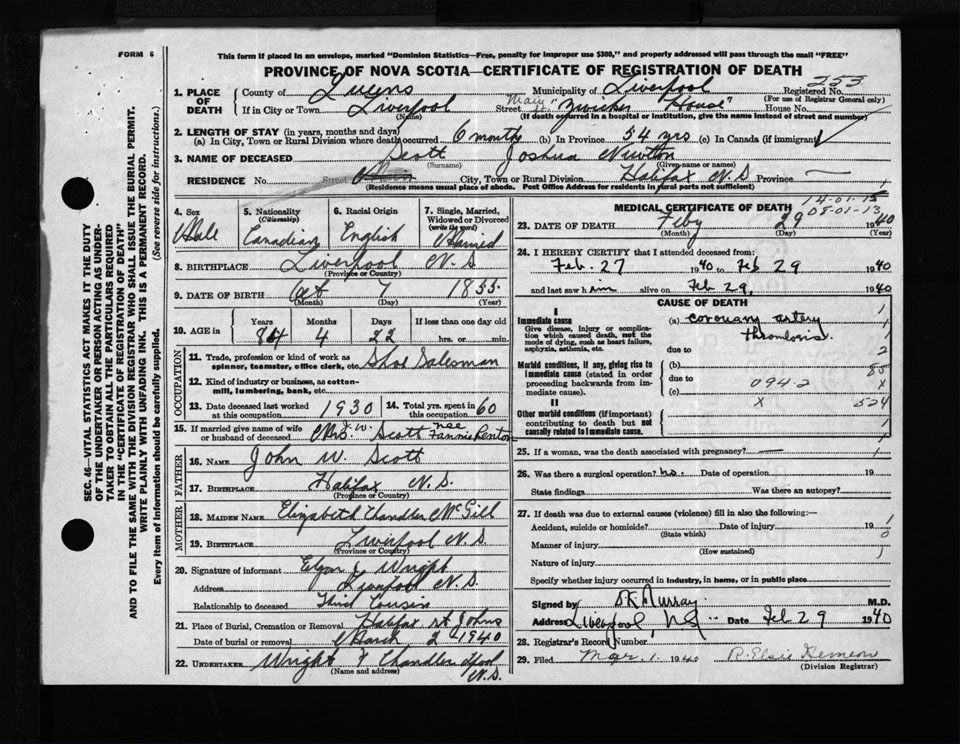 FORM 6
This form if placed in an envelope, marked "Dominion Statistics—Free, penalty for improper use $300," and properly addressed will pass through the mail "FREE"
PROVINCE OF NOVA SCOTIA—CERTIFICATE OF REGISTRATION OF DEATH
253
SEC. 46—VITAL STATISTICS ACT MAKES IT THE DUTY
OF THE UNDERTAKER OR PERSON ACTING AS UNDER-
TAKER TO OBTAIN ALL THE PARTICULARS REQUIRED
IN THE "CERTIFICATE OF REGISTRATION OF DEATH"
AND TO FILE THE SAME WITH THE DIVISION REGISTRAR WHO SHALL ISSUE THE BURIAL PERMIT.
WRITE PLAINLY WITH UNFADING INK. THIS IS A PERMANENT RECORD.
Every item of Information should be carefully supplied. (See reverse side for instructions.)
1. PLACE OF DEATH County of Queens Municipality of Liverpool Registered No.
(For use of Registrar General only)
If in City or Town Liverpool Street Main St. "Zwicker House" House No.
(Name) (If death occurred in a hospital or institution, give the name instead of street and number)
2. LENGTH OF STAY (in years, months and days)
(a) In City, Town or Rural Division where death occurred 6 months (b) In Province 54 yrs (c) In Canada (if immigrant)
3. NAME OF DECEASED Scott Joshua Newton
(Surname) (Given name or names)
RESIDENCE No. Street City, Town or Rural Division Halifax N S Province —
(Residence means usual place of abode. Post Office Address for residents in rural parts not sufficient)
4. Sex Male
5. Nationality (Citizenship) Canadian
6. Racial Origin English
7. Single, Married, Widowed or Divorced (write the word) Married
8. BIRTHPLACE Liverpool N.S
(Province or Country)
9. DATE OF BIRTH Oct 7 1855
(Month) (Day) (Year)
10. AGE in Years Months Days If less than one day old
84 4 22 hrs. or min.
OCCUPATION
11. Trade, profession or kind of work as spinner, teamster, office clerk, etc. Shoe Salesman
12. Kind of industry or business, as cotton-mill, lumbering, bank, etc.
13. Date deceased last worked at this occupation 1930 14. Total yrs. spent in this occupation 60
15. If married give name of wife or husband of deceased Mrs. J. W. Scott nee Fannie Renton
FATHER
16. Name John W. Scott
17. Birthplace Halifax N.S.
(Province or Country)
MOTHER
18. Maiden Name Elizabeth Chandler McGill
19. Birthplace Liverpool N.S.
(Province or Country)
20. Signature of informant Wright
Address Liverpool N.S.
Relationship to deceased Third Cousin
21. Place of Burial, Cremation or Removal Halifax St Johns
Date of burial or removal March 2 1940
22. UNDERTAKER Wright & Chandler Lpool N.S.
(Name and address)
14-01-15
08-01-13
MEDICAL CERTIFICATE OF DEATH
23. DATE OF DEATH Feby 29 1940
(Month) (Day) (Year)
24. I HEREBY CERTIFY that I attended deceased from:
Feb. 27 1940 to Feb 29 1940
and last saw him alive on Feb 29, 1940
CAUSE OF DEATH
I
Immediate cause (a) coronary artery thrombosis.
Give disease, injury or complica-
tion which caused death, not the
mode of dying, such as heart failure,
asphyxia, asthenia, etc.
due to
Morbid conditions, if any, giving rise to
immediate cause (stated in order
proceeding backwards from im-
mediate cause).
(b)
due to 094.2
(c) x 524
II
Other morbid conditions (if important)
contributing to death but not
causally related to immediate cause.
25. If a woman, was the death associated with pregnancy? —
26. Was there a surgical operation? no. Date of operation 19
State findings Was there an autopsy?
27. If death was due to external causes (violence) fill in also the following:—
Accident, suicide or homicide? Date of injury 19
(State which)
Manner of injury
(How sustained)
Nature of injury
Specify whether injury occurred in industry, in home, or in public place
Signed by Murray M.D.
Address Liverpool, N.S. Date Feb 29 1940
28. Registrar's Record Number
29. Filed Mar. 1 1940 R. Elsie
(Division Registrar)